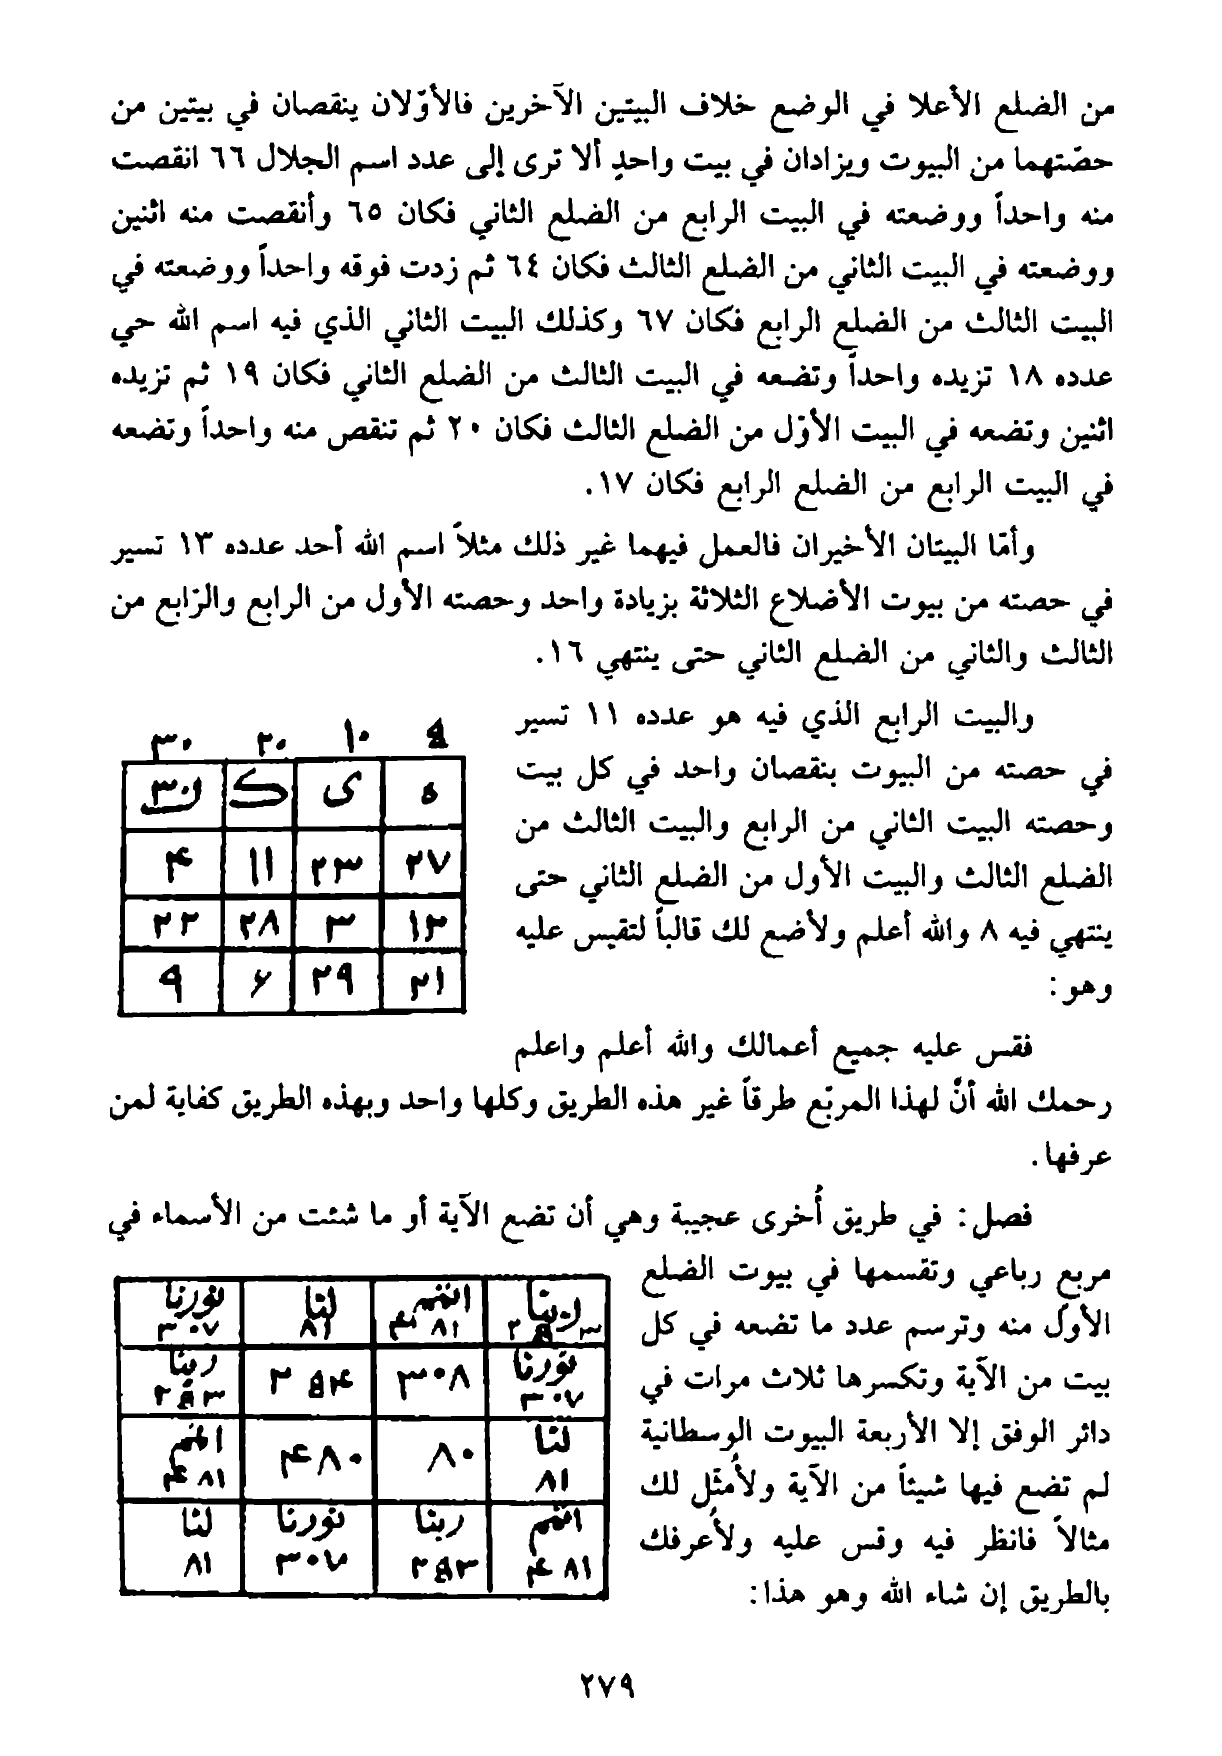 من الضلع الأعلا في الوضع خلاف البيتين الآخرين فالأوّلان ينقصان في بيتين من
حصّتهما من البيوت ويزادان في بيت واحدٍ ألا ترى إلى عدد اسم الجلال ٦٦ انقصت
منه واحداً ووضعته في البيت الرابع من الضلع الثاني فكان ٦٥ وأنقصت منه اثنين
ووضعته في البيت الثاني من الضلع الثالث فكان ٦٤ ثم زدت فوقه واحداً ووضعته في
البيت الثالث من الضلع الرابع فكان ٦٧ وكذلك البيت الثاني الذي فيه اسم الله حي
عدده ١٨ تزيده واحداً وتضعه في البيت الثالث من الضلع الثاني فكان ١٩ ثم تزيده
اثنين وتضعه في البيت الأوّل من الضلع الثالث فكان ٢٠ ثم تنقص منه واحداً وتضعه
في البيت الرابع من الضلع الرابع فكان ١٧.
وأمّا البيتان الأخيران فالعمل فيهما غير ذلك مثلاً اسم الله أحد عدده ١٣ تسير
في حصته من بيوت الأضلاع الثلاثة بزيادة واحد وحصته الأول من الرابع والرّابع من
الثالث والثاني من الضلع الثاني حتى ينتهي ١٦.
والبيت الرابع الذي فيه هو عدده ١١ تسير
في حصته من البيوت بنقصان واحد في كل بيت
وحصته البيت الثاني من الرابع والبيت الثالث من
الضلع الثالث والبيت الأول من الضلع الثاني حتى
ينتهي فيه ٨ والله أعلم ولأضع لك قالباً لتقيس عليه
وهو:
١٠ ٢٠ ٣٠
ه ى ک
٢٧ ٢٣ ١١ ۴
١٢ ٣ ٢٨ ٢٢
٢١ ٢٩ ۶ ٩
فقس عليه جميع أعمالك والله أعلم واعلم
رحمك الله أنّ لهذا المربّع طرقاً غير هذه الطريق وكلها واحد وبهذه الطريق كفاية لمن
عرفها.
فصل: في طريق أُخرى عجيبة وهي أن تضع الآية أو ما شئت من الأسماء في
مربع رباعي وتقسمها في بيوت الضلع
الأول منه وترسم عدد ما تضعه في كل
بيت من الآية وتكسرها ثلاث مرات في
دائر الوفق إلا الأربعة البيوت الوسطانية
لم تضع فيها شيئاً من الآية ولأُمثّل لك
مثالاً فانظر فيه وقس عليه ولأُعرفك
بالطريق إن شاء الله وهو هذا:
ربنا اتمم لنا نورنا
٤٨١ ٨١ ٣٠٧
نورنا ٣٠٨ ربنا
٣٠٧
لنا ٨٠ ۴٨٠ اتمم
٨١ ۴٨١
اتمم ربنا نورنا لنا
۴٨١ ٣٠٧ ٨١
٢٧٩